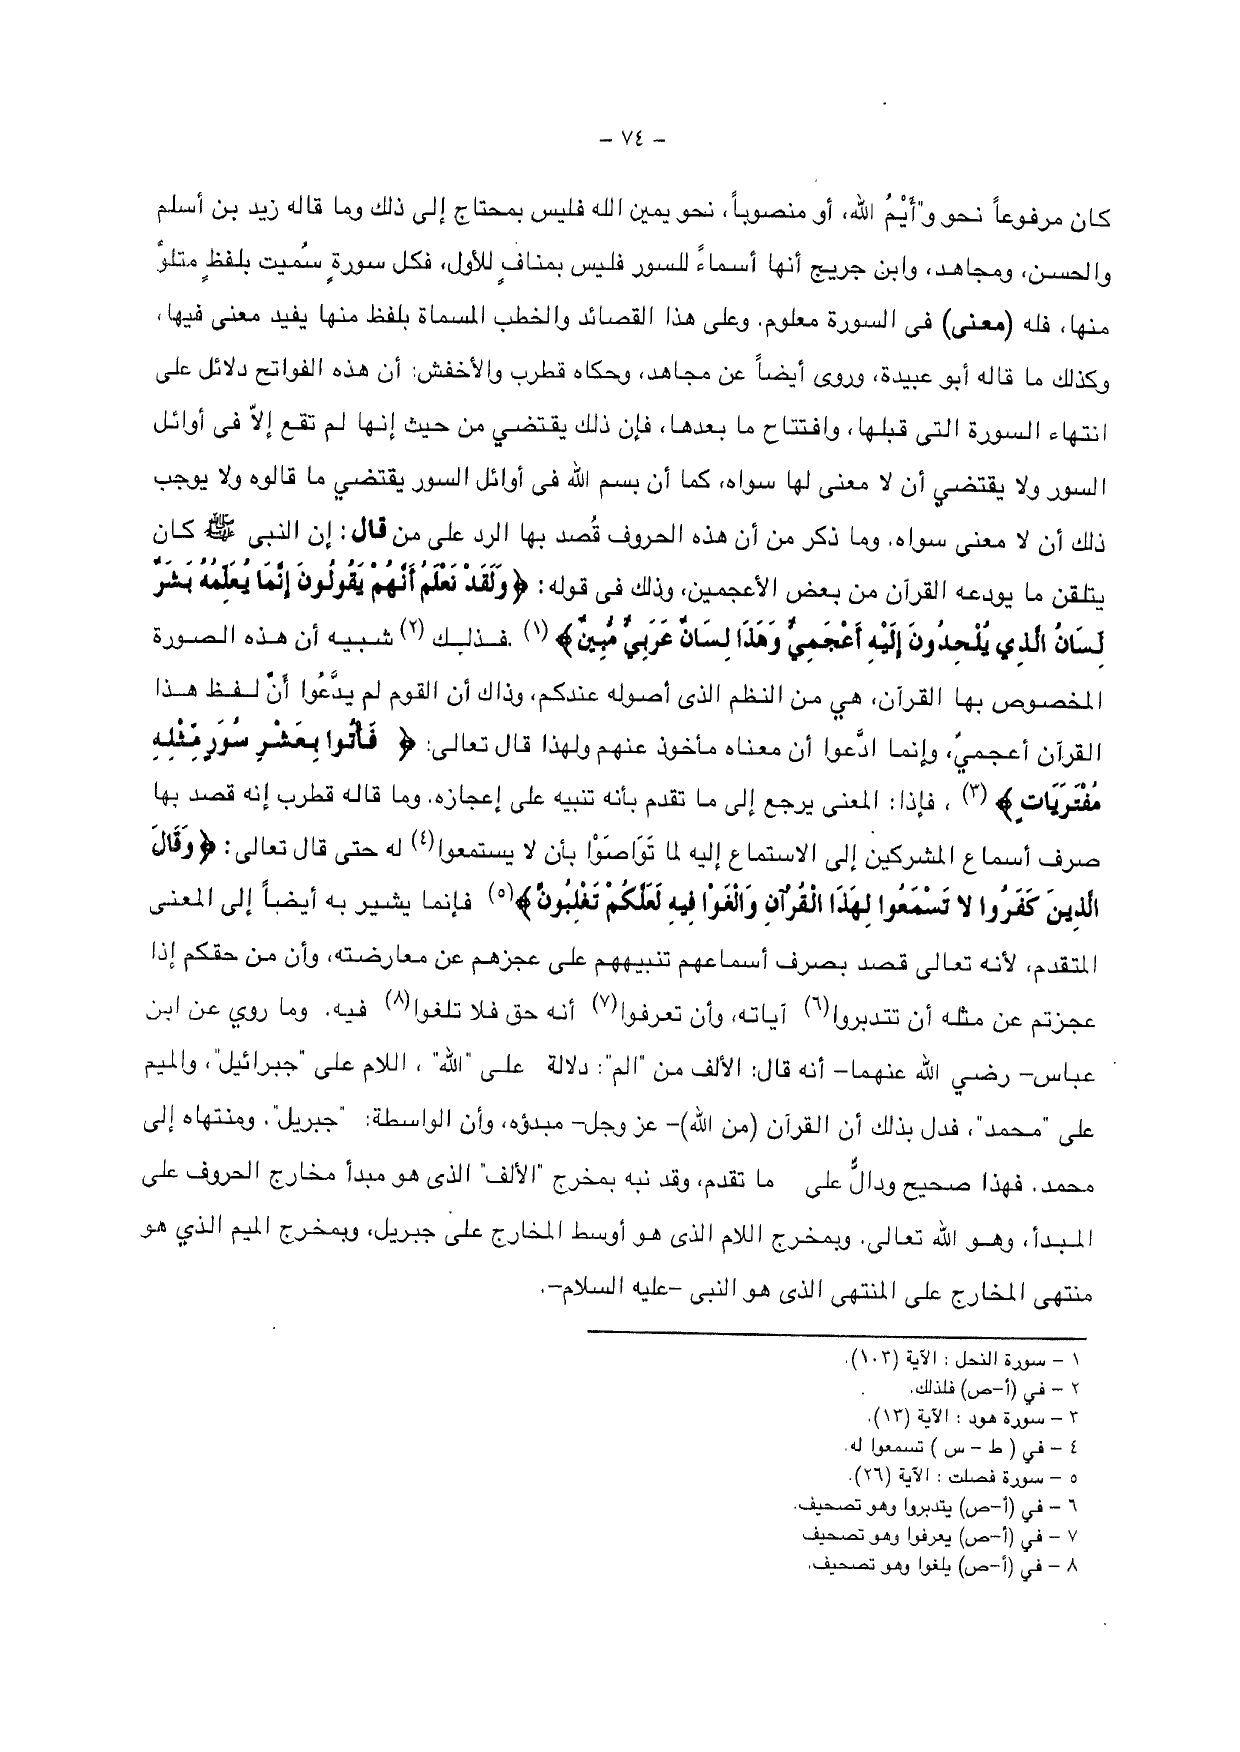 – ٧٤ –
كان مرفوعاً نحو و"أَيْمُ الله، أو منصوباً، نحو يمين الله فليس بمحتاج إلى ذلك وما قاله زيد بن أسلم
والحسن، ومجاهد، وابن جريج أنها أسماءً للسور فليس بمنافٍ للأول، فكل سورةٍ سُميت بلفظٍ متلوٍّ
منها، فله (معنى) فى السورة معلوم. وعلى هذا القصائد والخطب المسماة بلفظ منها يفيد معنى فيها،
وكذلك ما قاله أبو عبيدة، وروى أيضاً عن مجاهد، وحكاه قطرب والأخفش: أن هذه الفواتح دلائل على
انتهاء السورة التى قبلها، وافتتاح ما بعدها، فإن ذلك يقتضي من حيث إنها لم تقع إلاّ فى أوائل
السور ولا يقتضي أن لا معنى لها سواه، كما أن بسم الله فى أوائل السور يقتضي ما قالوه ولا يوجب
ذلك أن لا معنى سواه. وما ذكر من أن هذه الحروف قُصد بها الرد على من قال: إن النبي ﷺ كان
يتلقن ما يودعه القرآن من بعض الأعجمين، وذلك فى قوله: ﴿ وَلَقَدْ نَعْلَمُ أَنَّهُمْ يَقُولُونَ إِنَّمَا يُعَلِّمُهُ بَشَرٌ
لِسَانُ الَّذِي يُلْحِدُونَ إِلَيْهِ أَعْجَمِيٌّ وَهَذَا لِسَانٌ عَرَبِيٌّ مُّبِينٌ﴾ (١) .فـذلـك (٢) شـبـيـه أن هـذه الصـورة
المخصوص بها القرآن، هي من النظم الذى أصوله عندكم، وذاك أن القوم لم يدَّعُوا أنَّ لـفـظ هـذا
القرآن أعجميٌ، وإنما ادَّعوا أن معناه مأخوذ عنهم ولهذا قال تعالى: ﴿ فَأْتُوا بِعَشْرِ سُوَرٍ مِّثْلِهِ
مُفْتَرَيَاتٍ ﴾ (٣) ، فإذا: المعنى يرجع إلى ما تقدم بأنه تنبيه على إعجازه. وما قاله قطرب إنه قصد بها
صرف أسماع المشركين إلى الاستماع إليه لما تَوَاصَوْا بأن لا يستمعوا(٤) له حتى قال تعالى: ﴿ وَقَالَ
الَّذِينَ كَفَرُوا لا تَسْمَعُوا لِهَذَا الْقُرْآنِ وَالْغَوْا فِيهِ لَعَلَّكُمْ تَغْلِبُونَ﴾(٥) فإنما يشير به أيضاً إلى المعنى
المتقدم، لأنه تعالى قصد بصرف أسماعهم تنبيههم على عجزهم عن معارضته، وأن من حقكم إذا
عجزتم عن مثله أن تتدبروا(٦) آياته، وأن تعرفوا(٧) أنه حق فلا تلغوا(٨) فيه. وما روي عن ابن
عباس– رضي الله عنهما– أنه قال: الألف من "الم": دلالة على "الله" ، اللام على "جبرائيل"، والميم
على "محمد"، فدل بذلك أن القرآن (من الله)– عز وجل– مبدؤه، وأن الواسطة: "جبريل". ومنتهاه إلى
محمد. فهذا صحيح ودالٌّ على ما تقدم، وقد نبه بمخرج "الألف" الذى هو مبدأ مخارج الحروف على
المبدأ، وهو الله تعالى. وبمخرج اللام الذى هو أوسط المخارج على جبريل، وبمخرج الميم الذي هو
منتهى المخارج على المنتهى الذى هو النبى –عليه السلام–.
١ – سورة النحل : الآية (١٠٣).
٢ – في (أ–ص) فلذلك.
٣ – سورة هود : الآية (١٣).
٤ – في ( ط – س ) تسمعوا له.
٥ – سورة فصلت : الآية (٢٦).
٦ – في (أ–ص) يتدبروا وهو تصحيف.
٧ – في (أ–ص) يعرفوا وهو تصحيف
٨ – في (أ–ص) يلغوا وهو تصحيف.